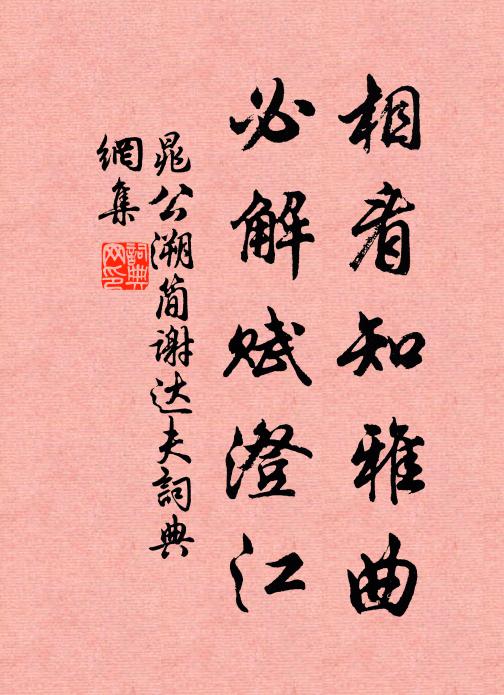 相看知雅曲
必解赋澄江
晁公溯简谢达夫詞典
網集
詞典
网印